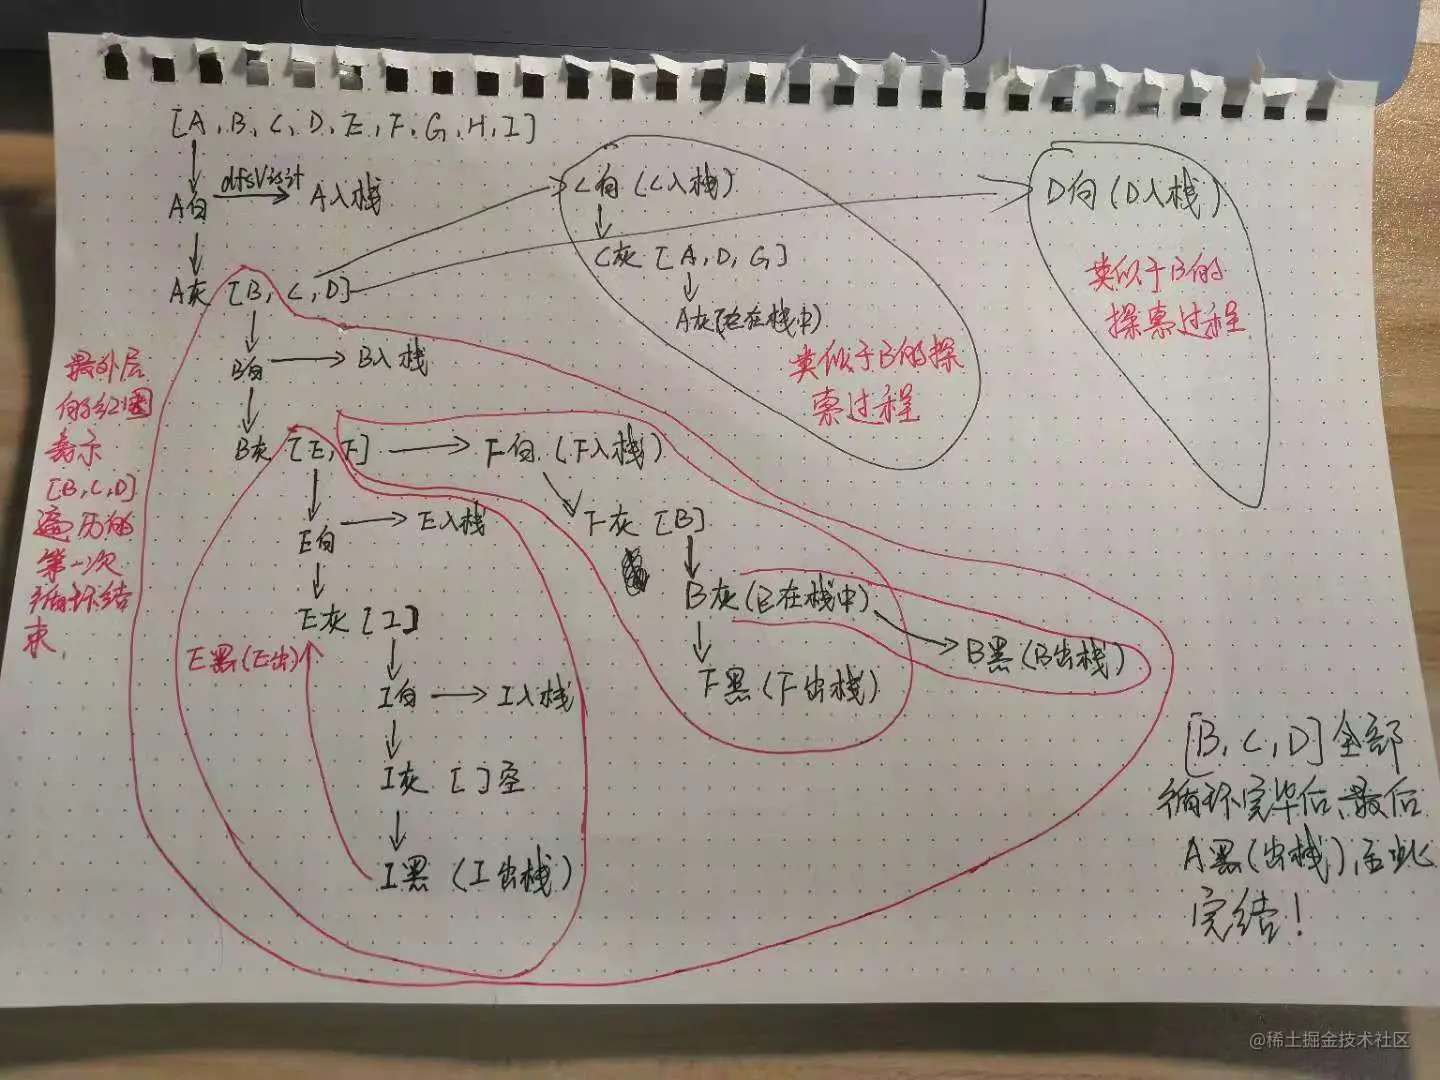 [A, B, C, D, E, F, G, H, I]
A白
dfsVisit
A入栈
A灰 [B, C, D]
B白
B入栈
B灰 [E, F]
F白 (F入栈)
E白
E入栈
F灰 [B]
E灰 [I]
B灰(B在栈中)
B黑(B出栈)
E黑(E出)
I白
I入栈
F黑(F出栈)
I灰 [ ]空
I黑 (I出栈)
C白 (C入栈)
C灰 [A, D, G]
A灰(在栈中)
类似于B的探
索过程
D白 (D入栈)
类似于B的
探索过程
最外层
的红圈
表示
[B, C, D]
遍历的
第一次
循环结
束
[B, C, D] 全部
循环完毕后,最后
A黑(出栈),至此
完结!
@稀土掘金技术社区